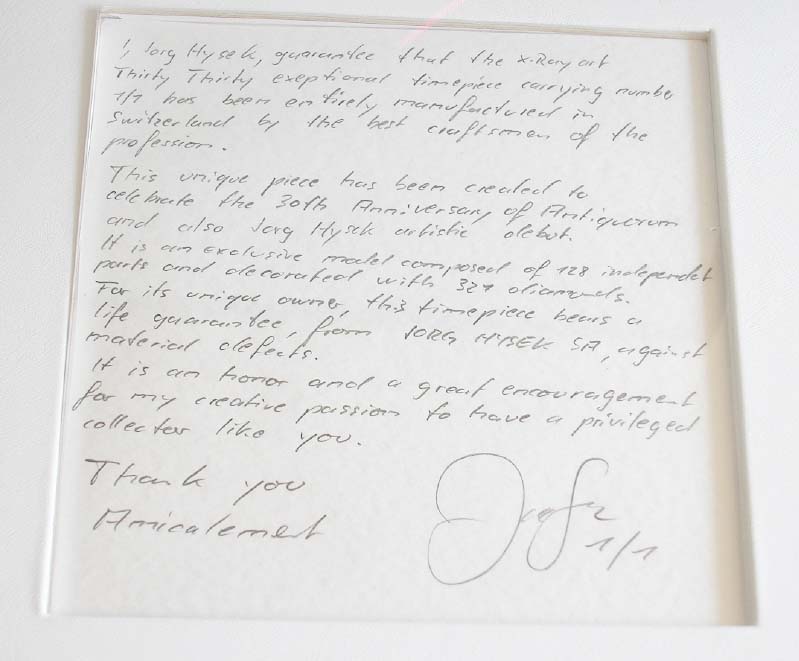 I, Jorg Hysek, guarantee that the X-Ray art
Thirty Thirty exeptional timepiece carrying number
1/1 has been entirely manufactured in
Switzerland by the best craftsman of the
profession.
This unique piece has been created to
celebrate the 30th Anniversary of Antiquorum
and also Jorg Hysek artistic debut.
It is an exclusive model composed of 128 independet
parts and decorated with 321 diamonds.
For its unique owner, this timepiece bears a
life guarantee, from JORG HYSEK SA, against
material defects.
It is an honor and a great encouragement
for my creative passion to have a privileged
collector like you.
Thank you
Amicalement
1/1